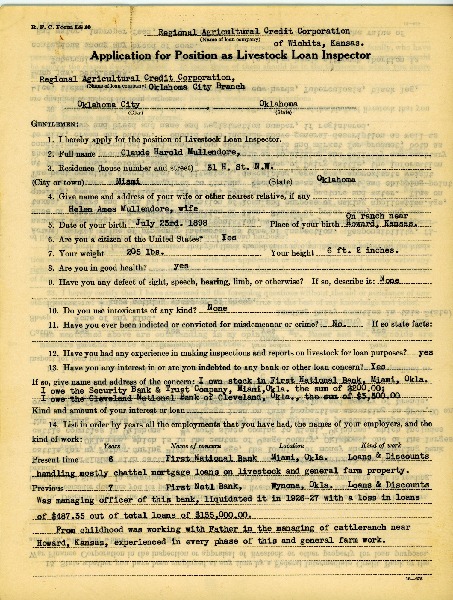 R. F. C. Form LS 20
Regional Agricultural Credit Corporation
(Name of loan company) of Wichita, Kansas.
Application for Position as Livestock Loan Inspector
Regional Agricultural Credit Corporation,
(Name of loan company) Oklahoma City Branch
Oklahoma City Oklahoma
(City) (State)
GENTLEMEN:
1. I hereby apply for the position of Livestock Loan Inspector.
2. Full name Claude Harold Mullendore,
3. Residence (house number and street) 51 H. St. N.W.
(City or town) Miami (State) Oklahoma
4. Give name and address of your wife or other nearest relative, if any
Helen Ames Mullendore, wife
On ranch near
5. Date of your birth July 23rd. 1898 Place of your birth Howard, Kansas.
6. Are you a citizen of the United States? Yes
7. Your weight 205 lbs. Your height 6 ft. 2 inches.
8. Are you in good health? yes
9. Have you any defect of sight, speech, hearing, limb, or otherwise? If so, describe it: None
10. Do you use intoxicants of any kind? None
11. Have you ever been indicted or convicted for misdemeanor or crime? No. If so state facts:
12. Have you had experience in making inspections and reports on livestock for loan purposes? yes
13. Have you any interest in or are you indebted to any bank or other loan concern? Yes
If so, give name and address of the concern: I own stock in First National Bank, Miami, Okla.
I owe the Security Bank & Trust Company, Miami, Okla. the sum of $200.00;
I owe the Cleveland National Bank of Cleveland, Okla., the sum of $3,500.00
Kind and amount of your interest or loan
14. List in order by years all the employments that you have had, the names of your employers, and the
kind of work:
Years Name of concern Location Kind of work
Present time 6 First National Bank Miami, Okla. Loans & Discounts
handling mostly chattel mortgage loans on livestock and general farm property.
Previous 7 First Natl Bank, Wynona, Okla. Loans & Discounts
Was managing officer of this bank, liquidated it in 1926-27 with a loss in loans
of $487.35 out of total loans of $155,000.00.
From childhood was working with Father in the managing of cattleranch near
Howard, Kansas, experienced in every phase of this and general farm work.